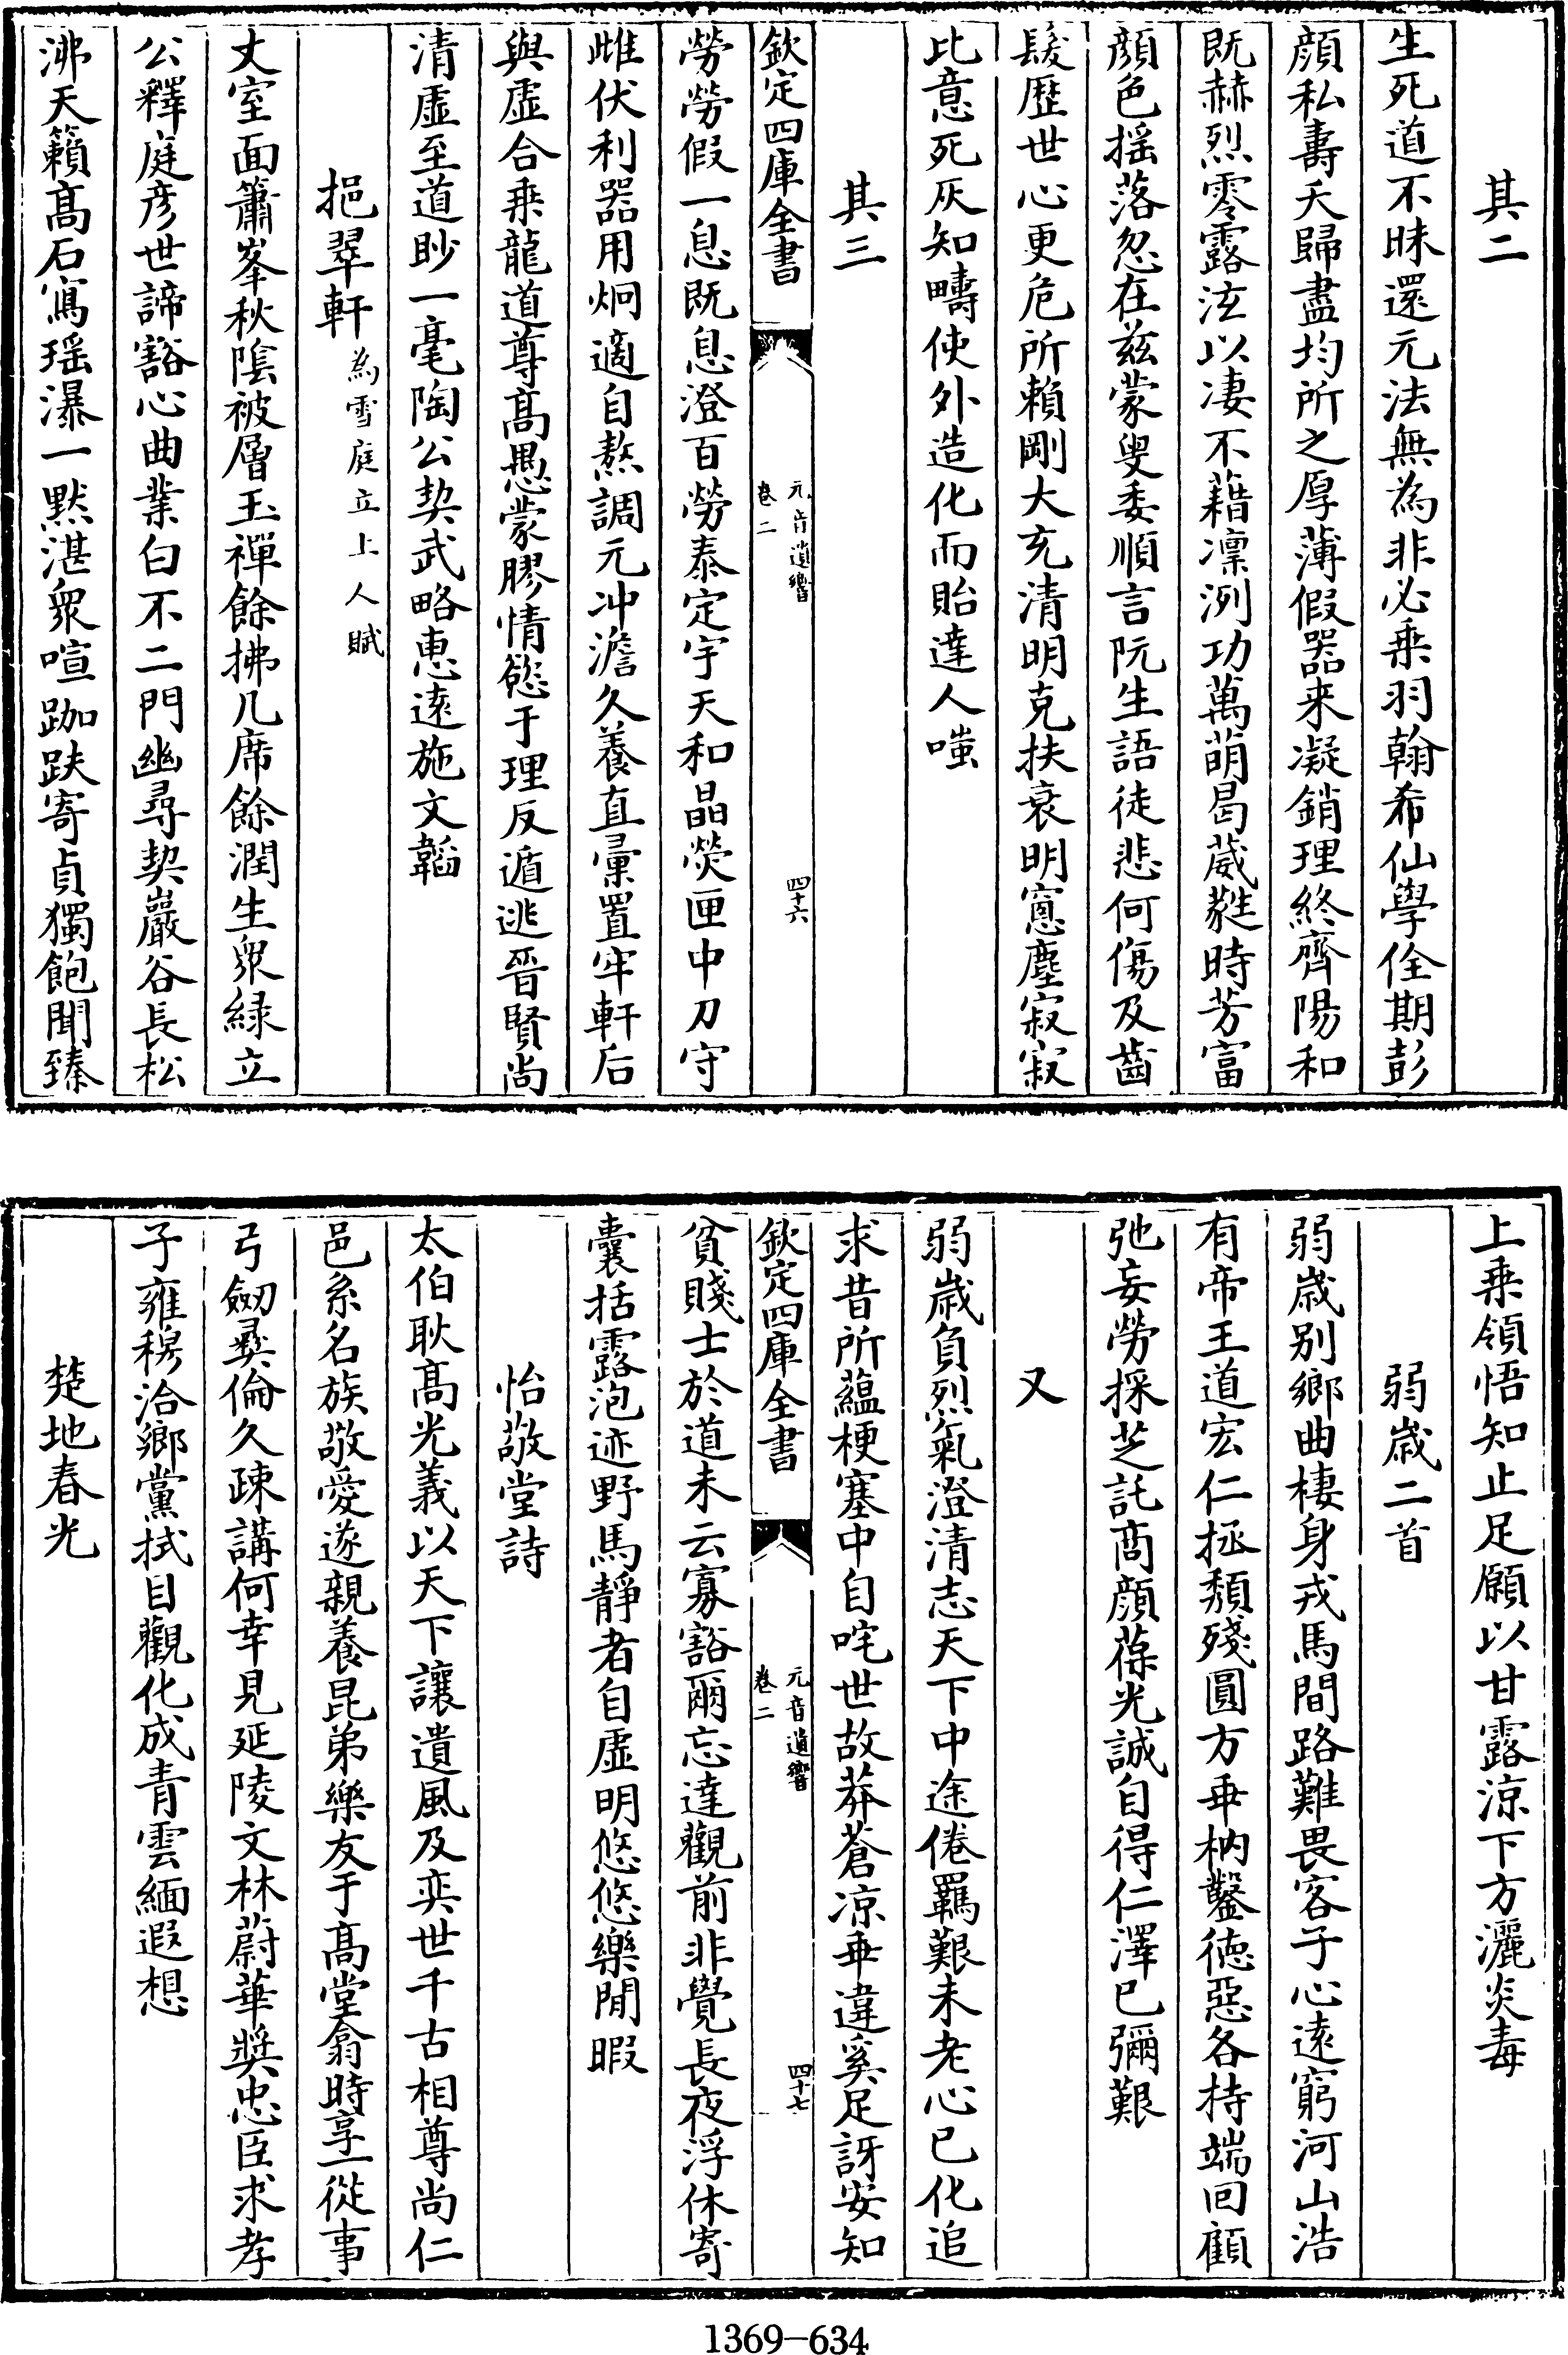 其二
生死道不昧還元法無為非必乗羽翰希仙學佺期彭
顔私壽夭歸盡均所之厚薄假器来凝銷理終齊陽和
既赫烈零露泫以凄不藉凛洌功萬萌曷葳蕤時芳富
顔色摇落忽在兹蒙叟委順言阮生語徒悲何傷及齒
髮歴世心更危所賴剛大充清明克扶衰明窓塵寂寂
比意死灰知疇使外造化而貽達人嗤
其三
欽定四庫全書
元音遺響
卷二
四十六
勞勞假一息既息澄百勞泰定宇天和晶熒匣中刀守
雌伏利器用炯適自熬調元冲澹久養直彙置牢軒后
與虚合乗龍道尊高愚蒙膠情慾于理反遁逃晉賢尚
清虚至道眇一毫陶公契武略惠逺施文韜
挹翠軒為雪庭立上人賦
丈室面簫峯秋隂被層玉禪餘拂几席餘潤生衆緑立
公釋庭彦世諦豁心曲業白不二門幽尋契巖谷長松
沸天籟髙石寫瑶瀑一黙湛衆喧跏趺寄貞獨飽聞臻
上乗領悟知止足願以甘露涼下方灑炎毒
弱歳二首
弱歳别鄉曲棲身戎馬間路難畏客子心逺窮河山浩
有帝王道宏仁拯頽殘圓方乖枘鑿徳惡各持端回顧
弛妄勞採芝託商顔葆光誠自得仁澤已彌艱
又
弱歳負烈氣澄清志天下中途倦羈艱未老心已化追
求昔所蘊梗塞中自咤世故莽蒼凉乖違奚足訝安知
欽定四庫全書
元音遺響
卷二
四十七
貧賤士於道未云寡豁爾忘達觀前非覺長夜浮休寄
囊括露泡迹野馬靜者自虚明悠悠樂閒暇
怡敬堂詩
太伯耿髙光義以天下讓遺風及奕世千古相尊尚仁
邑系名族敬愛遂親養昆弟樂友于髙堂翕時享一從事
弓劒彛倫久疎講何幸見延陵文林蔚華奬忠臣求孝
子雍穆洽鄉黨拭目觀化成青雲緬遐想
楚地春光
1369-634